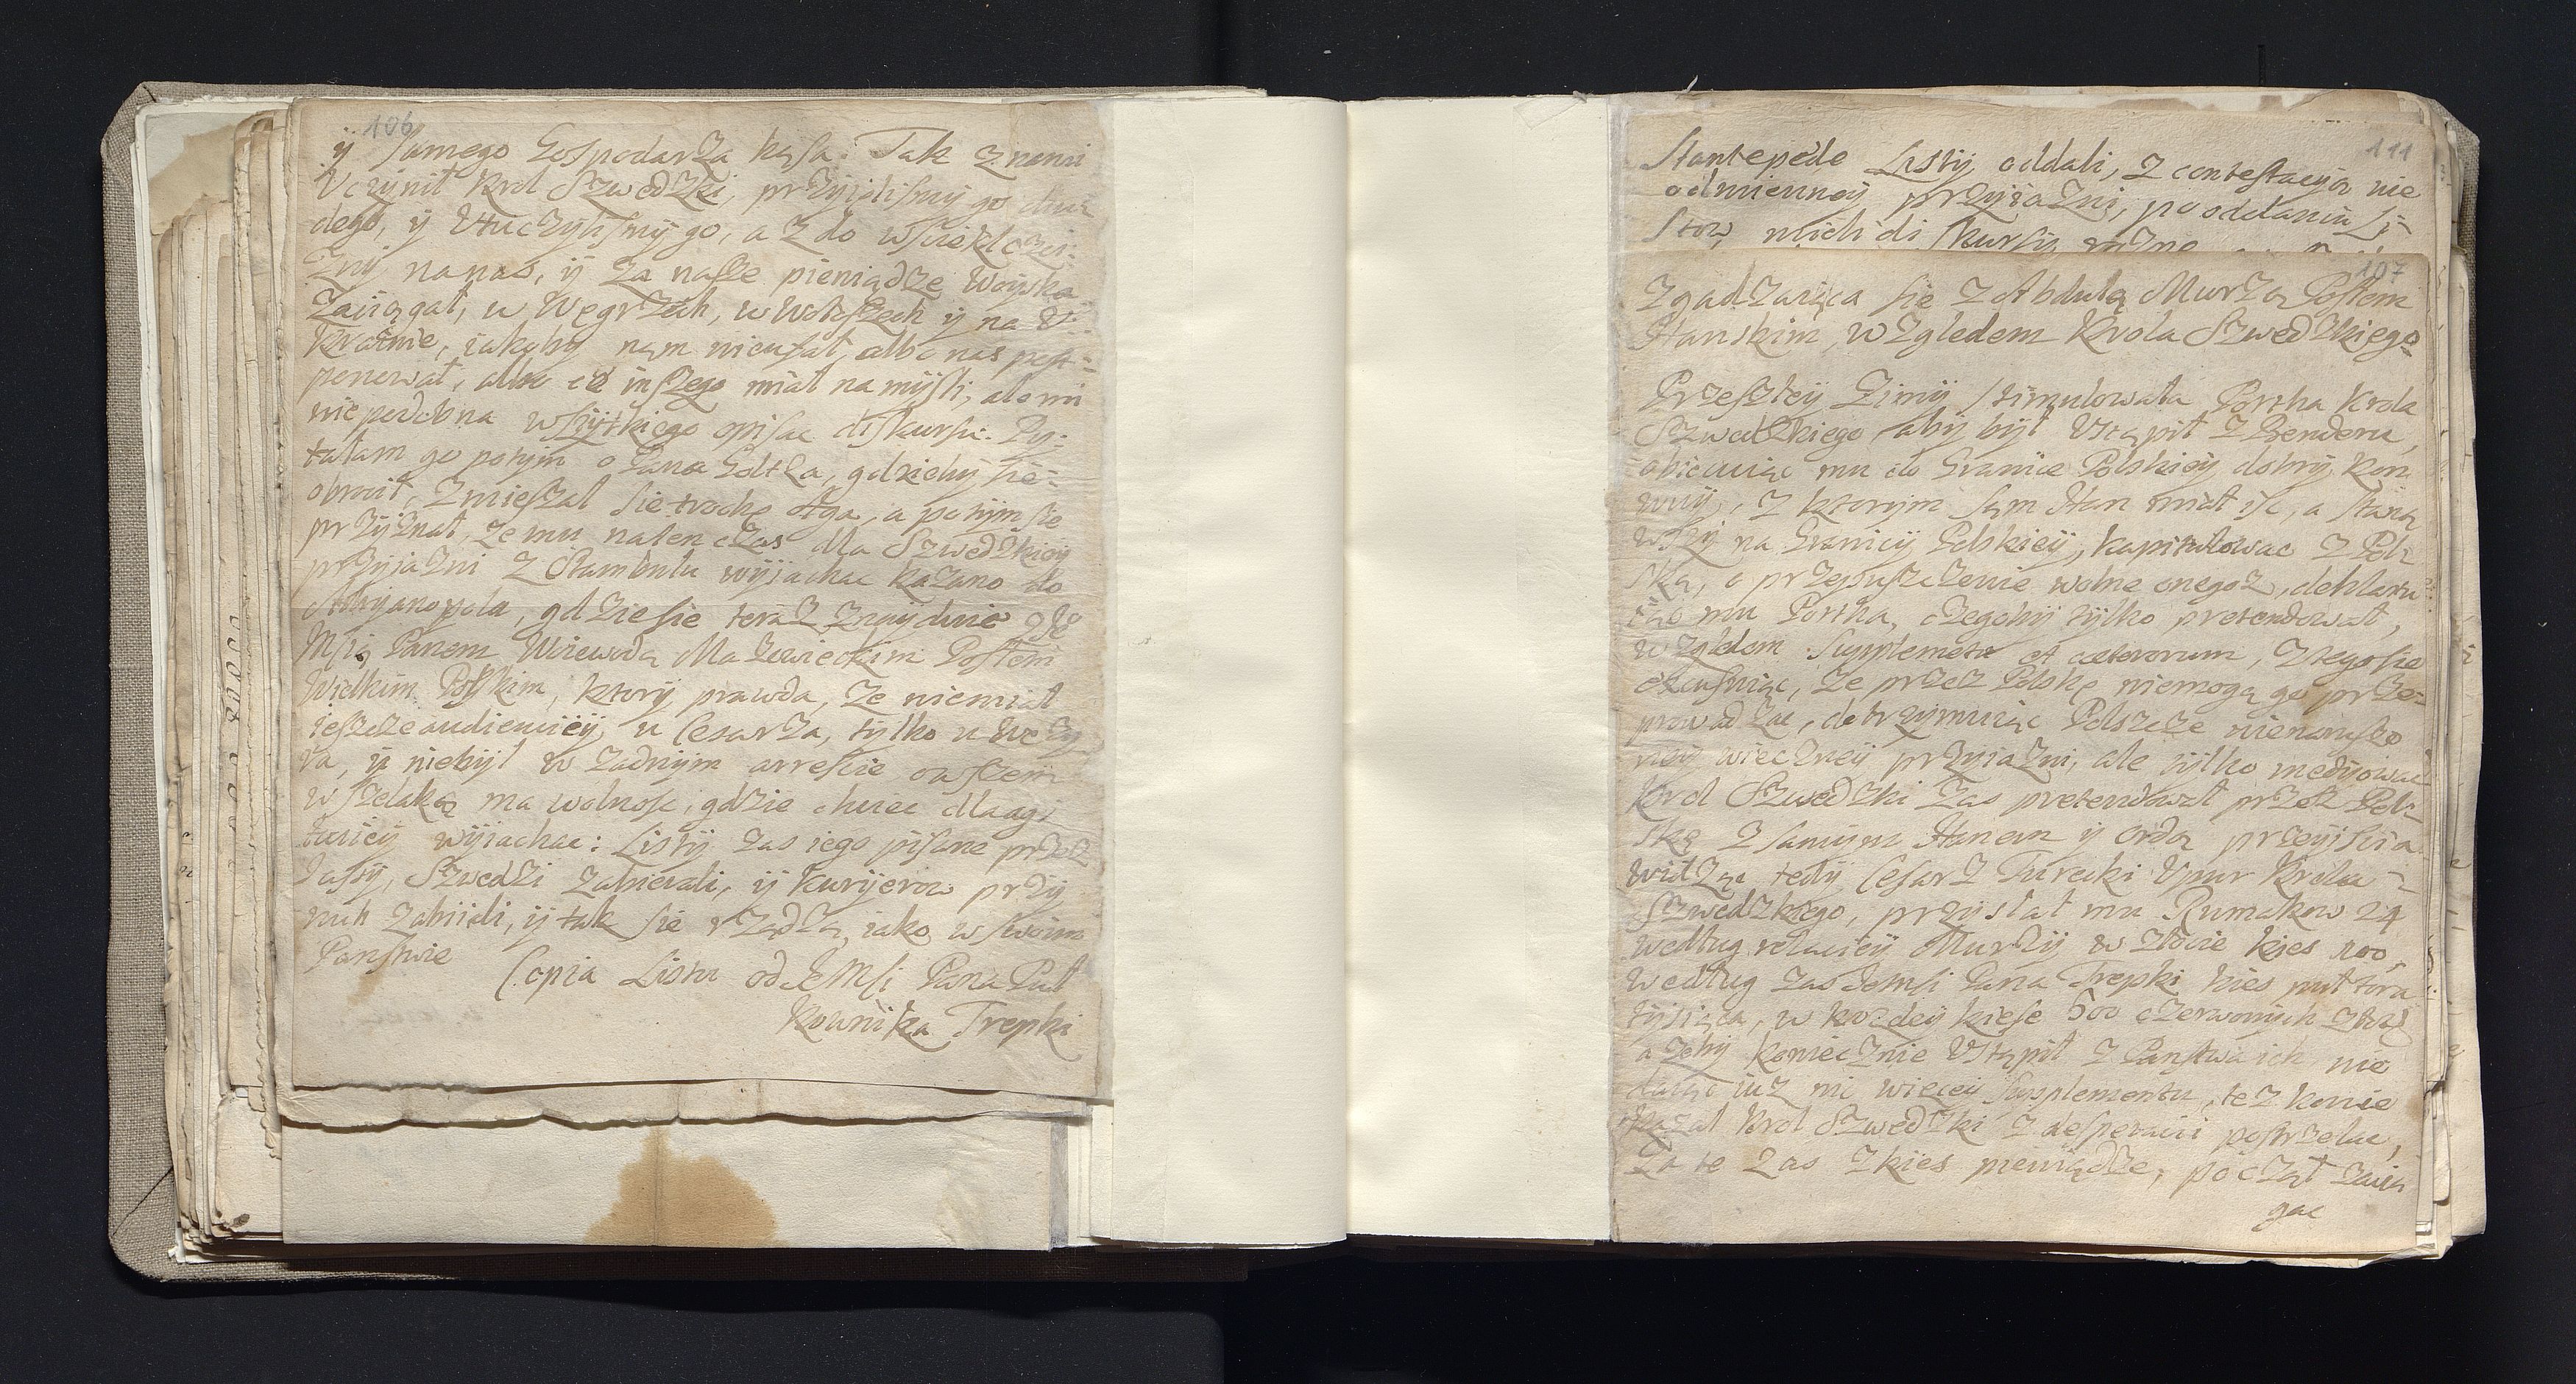 106
ÿ samego Gospodarza kąsa. Tak z nami
Uczÿnił Krol Szwedzki, przÿjęlismÿ go chu-
dego, ÿ Utuczÿlismÿ go, a z do wsciekl
znÿ na nas, ÿ za nasze pieniądze Woÿska
zaciągał, w Węgrzech, w Wołoszech ÿ na U-
krainie, iakobÿ nąm nieufał, albo nas post-
ponował, albo co inszego miał na mÿsli, ale mi
niepodobna wszÿtkiego opisac diskursu. Pÿ-
tałam go potÿm o Pana Goltza, gdziebÿ sie
obrocił, zmieszał sie trochę Aga, a potÿm sie
przÿznał, ze mu naten czas dla Szwedzkieÿ
przÿjazni z Stambułu wÿjachac kazano do
Adrÿanopola, gdzie sie teraz znaÿduie z Je
Msią Panem Woiewodą Mazowieckim Posłem
Wielkim Polskim, ktorÿ prawda, ze niemiał
ieszcze audiencieÿ u Cesarza, tÿlko u Wezÿ-
ra, ÿ niebÿł w zadnÿm arrescie owszem
wszelaką ma wolnosc, gdzie chciec dla agi-
tacieÿ wÿjachac: Listÿ zas iego pisane przez
Jassÿ, Szwedzi zabierali, ÿ kurÿerow przÿ
nich zabiiali, ÿ tak sie rządzą, iako w swoim
Panstwie
Copia Listu od Je Msi Pana Puł
kownika Trepki
111
Stantepede Listÿ oddali, z contestacÿą nie
odmiennoÿ przÿiazni, po oddaniu Li-
stow, mieli diskursa rozne
107
Zgadzaiąca sie z Abdulą Murzą Posłem
Hanskim, wzgledem Krola Szwedzkiego
Przeszłeÿ Zimÿ stimulowała Portha Krola
Szwedzkiego, abÿ bÿł Ustąpił z Benderu,
obiecuiąc mu do Granice Polskieÿ dobrÿ kon
woÿ, z ktorÿm sąm Han miał isc, a staną
wszÿ na Granicÿ Polskieÿ, kapitulowac z Pol-
ską, o przepuszczenie wolne onegoz, deklaru
iąc mu Portha, czegobÿ tÿlko pretendował,
wzgledem Supplementu et caeterorum, z tego sie
exkusuiąc, ze przez Polskę niemogą go prze-
prowadzac, dotrzÿmuiąc Polszcze nienaruszo
neÿ wieczneÿ przÿiazni, ale tÿlko medÿowac
Krol Szwedzki zas pretendował przez Pol-
skę z samÿm Hanem ÿ ordą przeÿscia
widząc tedÿ Cesarz Turecki Upur Krola
Szwedzkiego, przÿsłał mu Rumakow 24
według relacieÿ Murzÿ w złocie kies 100,
według zas Jemsi Pana Trepki kies puł tora
tÿsiąca, w kozdeÿ kiesie 500 czerwonÿch złot
azebÿ koniecznie Ustąpił z Panstwa ich nie
daiąc iuz nic wieceÿ supplementu, tez konie
kazał Krol Szwedzki z desperacii postrzelac,
Za te zas z kies pieniądze, począł zacią
gac